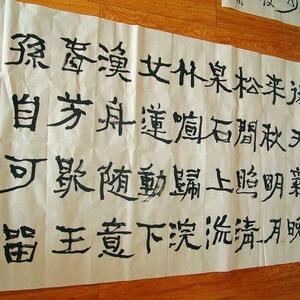 後天氣晚
来秋明月
松間照清
泉石上流
竹喧歸浣
女蓮動下
漁舟随意
春芳歇王
孫自可留